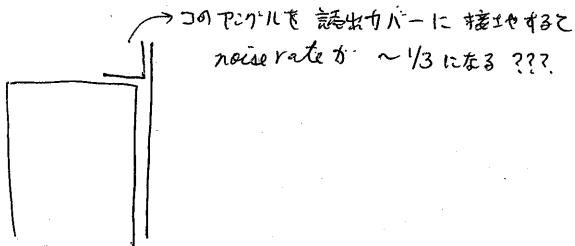 このアングルを 読出カバーに 接地すると
noise rateが ～1/3 になる ???